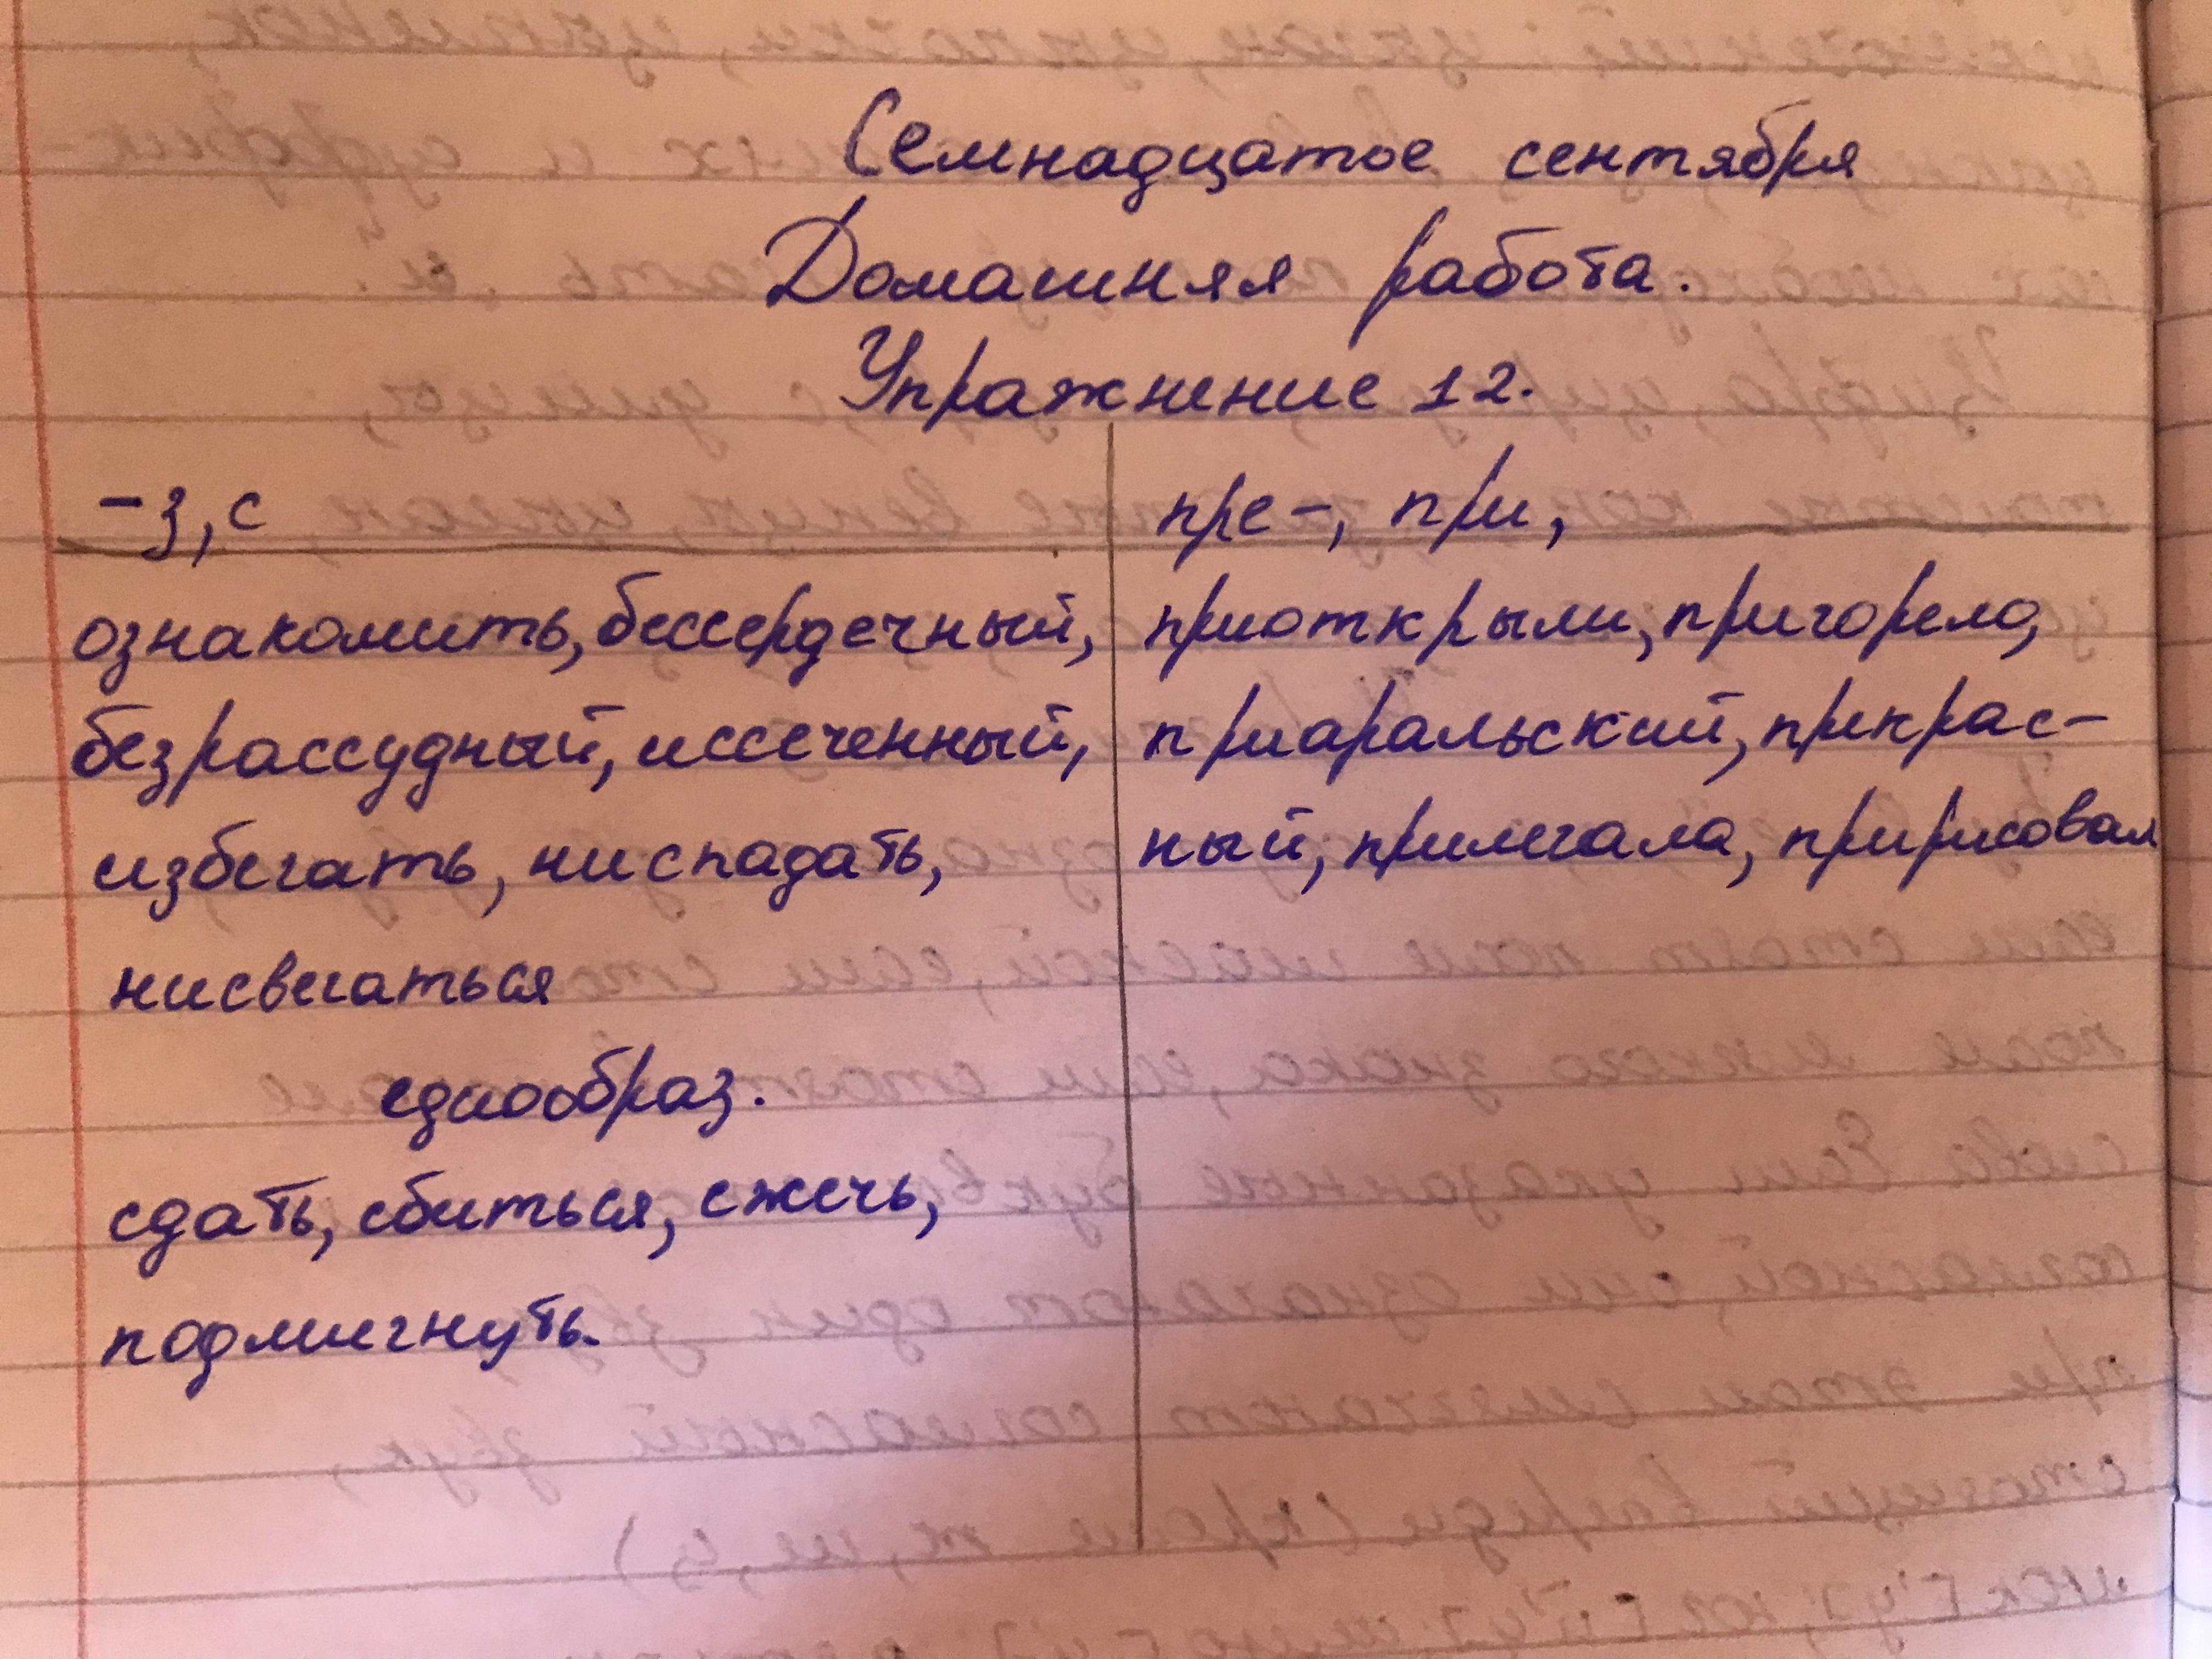 Семнадцатое сентября
Домашняя работа.
Упражнение 12.
-з, с
ознакомить, бессердечный,
безрассудный, иссеченный,
избегать, ниспадать,
нисвегаться
еднообраз.
сдать, сбиться, сжечь,
подмигнуть.
пре-, при,
приоткрыли, пригорело,
приаральский, прекрас-
ный, прилегала, пририсовал